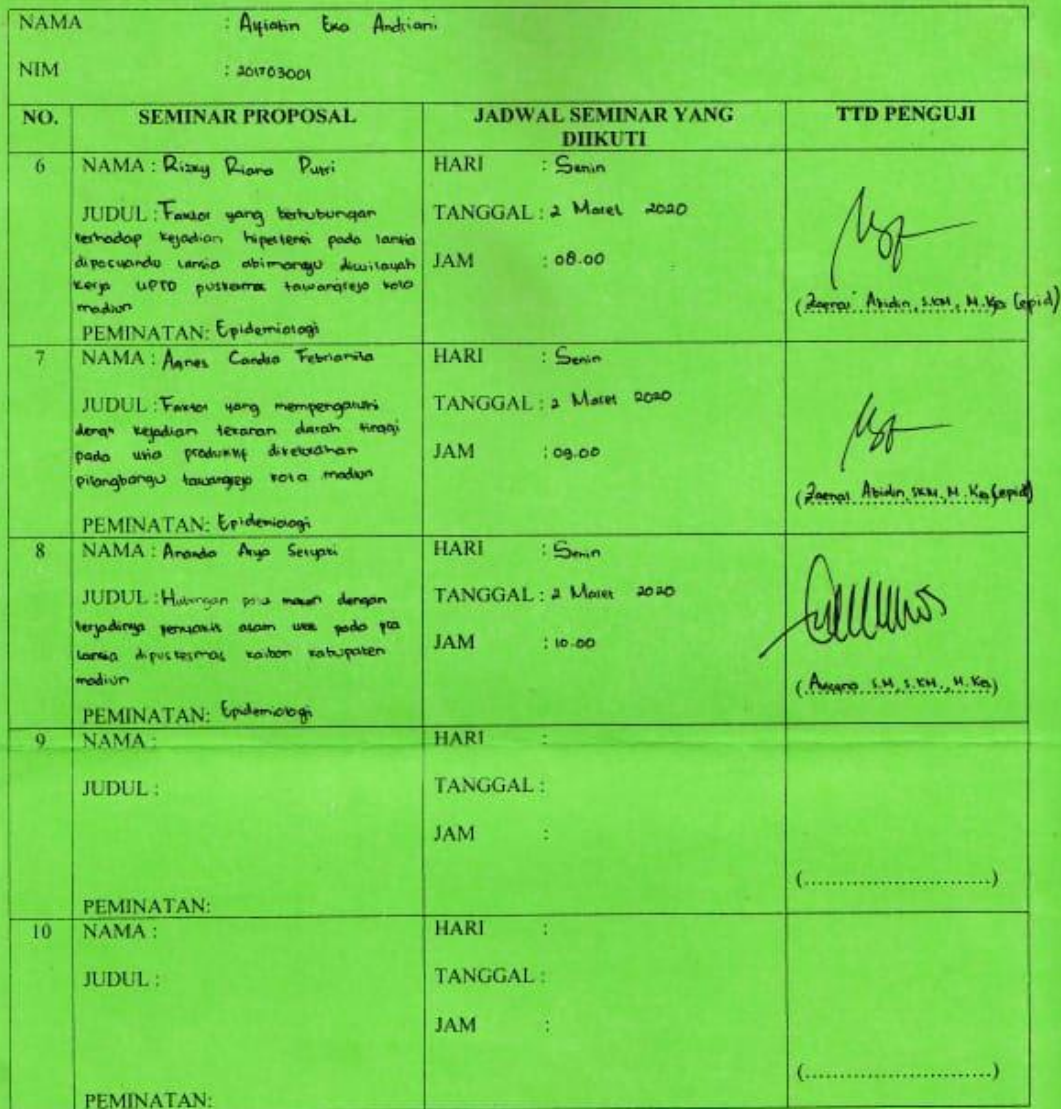 NAMA : Alfiatin Eka Andriani
NIM : 201703001
NO. SEMINAR PROPOSAL JADWAL SEMINAR YANG DIIKUTI TTD PENGUJI
6 NAMA : Rizky Riana Putri
JUDUL : Faktor yang berhubungan
terhadap kejadian hipertensi pada lansia
diposyandu lansia abimanyu diwilayah
kerja UPTD puskesmas tawangrejo kota
madiun
PEMINATAN: Epidemiologi
HARI : Senin
TANGGAL : 2 Maret 2020
JAM : 08.00
(Zaenal Abidin, S.KM, M.Kes (epid)
7 NAMA : Agnes Candra Febrianita
JUDUL : Faktor yang mempengaruhi
dengan kejadian tekanan darah tinggi
pada usia produktif dikelurahan
pilangbangu tawangrejo kota madiun
PEMINATAN: Epidemiologi
HARI : Senin
TANGGAL : 2 Maret 2020
JAM : 09.00
(Zaenal Abidin, SKM, M.Kes (epid)
8 NAMA : Ananda Arya Setyati
JUDUL : Hubungan pola makan dengan
terjadinya penyakit asam urat pada pra
lansia dipuskesmas kaibon kabupaten
madiun
PEMINATAN: Epidemiologi
HARI : Senin
TANGGAL : 2 Maret 2020
JAM : 10.00
(Avicena S.M, S.KM., M.Kes)
9 NAMA :
JUDUL :
PEMINATAN:
HARI :
TANGGAL :
JAM :
(..........................)
10 NAMA :
JUDUL :
PEMINATAN:
HARI :
TANGGAL :
JAM :
(..........................)